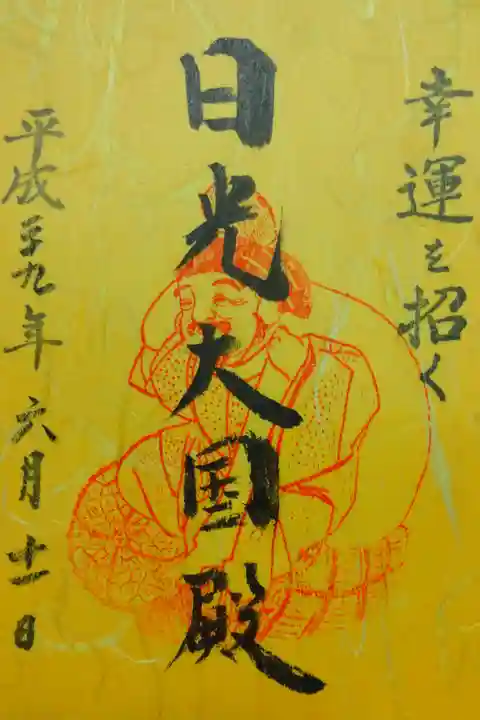 幸運を招く
日光大国殿
平成二十九年六月十一日